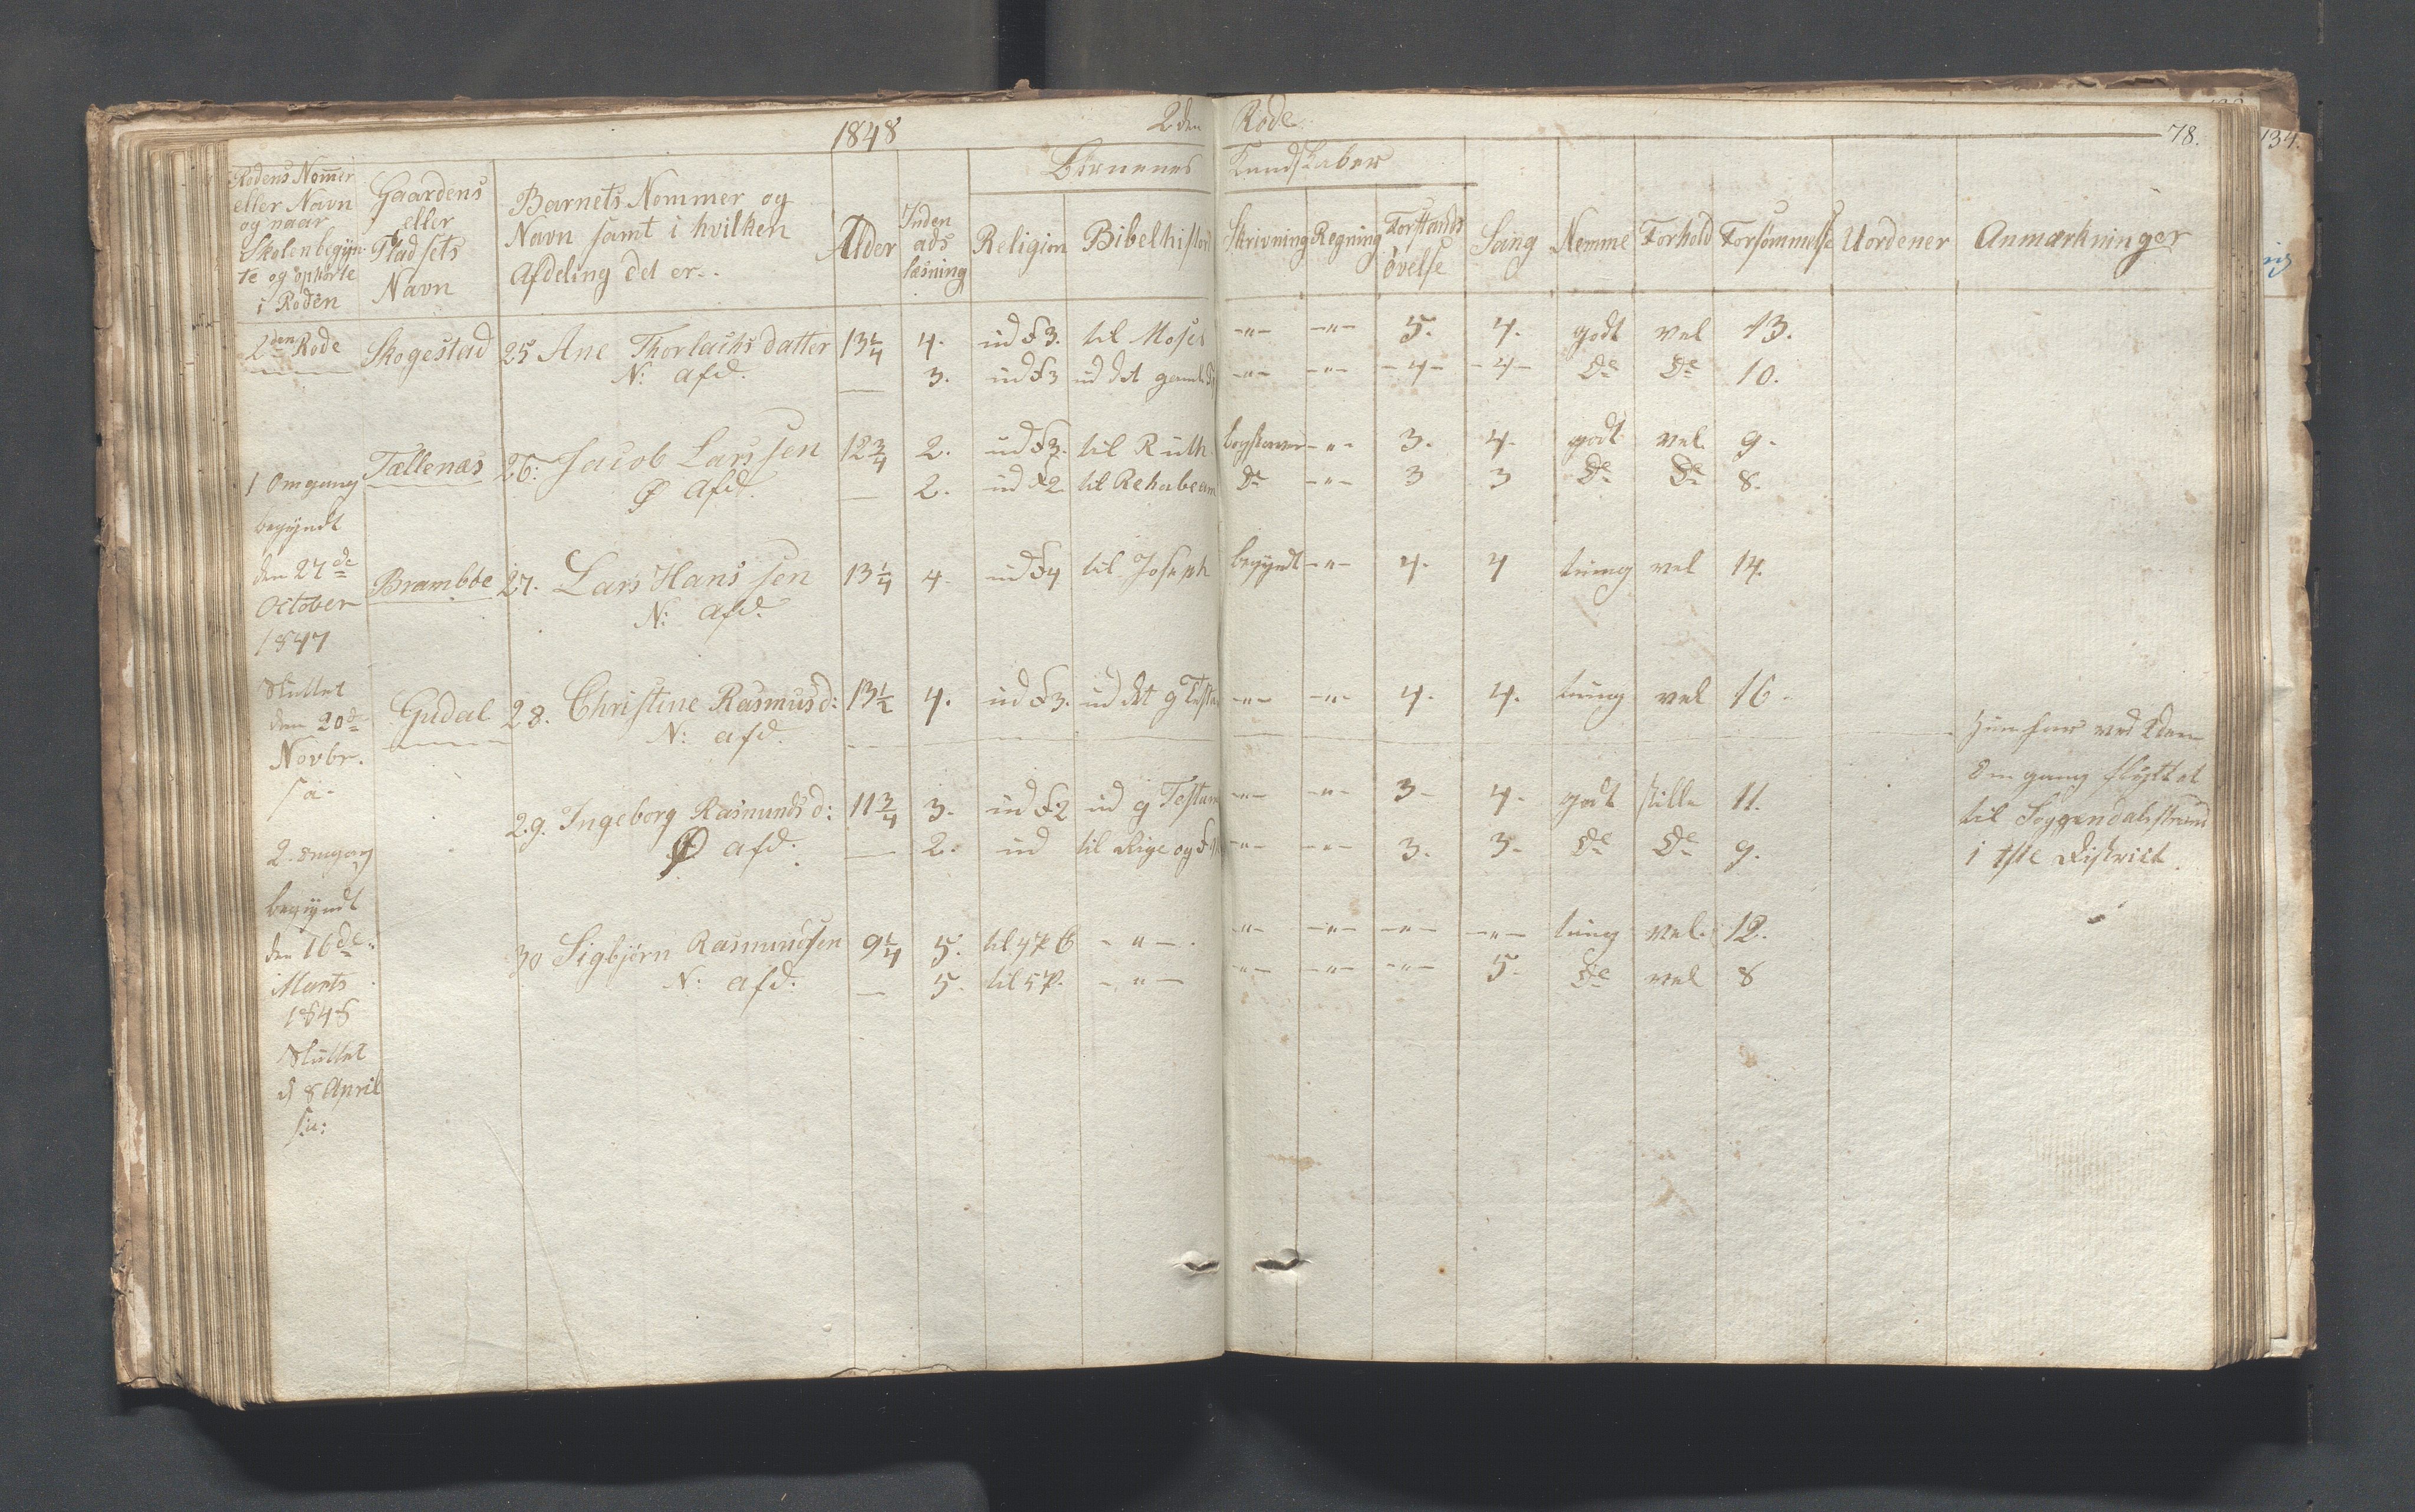 1848 2den Rode 78.
Børnenes Kundskaber
Rodens Nommer eller Navn og naar Skolen begyn- te og ophørte i Roden
Gaardens eller Pladsets Navn
Barnets Nommer og Navn samt i hvilken Afdeling det er.
Alder
Inden ads læsning
Religion
Bibelhistorie
Skrivning
Regning
Forstands øvelse
Sang
Nemme
Forhold
Forsømmelse
Uordener
Anmærkninger
2den Rode Skogestad 25 Ane Thorlachs datter 13 1/4 4. ud F3. til Moses -"- -"- 5. 4. godt vel 13.
N: afd. — 3. ud F3 ud det gamle -"- -"- -4- -4- Do Do 10.
Tællenæs 26: Jacob Larssen 12 3/4 2. ud F3. til Ruth bogstaver -"- 3. 4. godt vel 9.
Ø afd. — 2. ud F2 til Rehabeam Do -"- 3 3 Do Do 8.
Brambøe 27. Lars Hanssen 13 1/4 4. ud F4 til Joseph begyndt -"- 4. 4 tung vel 14.
N: afd.
Gudal 28. Christine Rasmusd: 13 1/2 4. ud F3. ud det g Testam -"- -"- 4. 4. tung vel 16.
N: afd.
29. Ingeborg Rasmunds d: 11 3/4 3. ud F2 ud g Testam -"- -"- 3- 4- godt stille 11.
Ø afd. — 2. ud til Rige og -"- -"- 3. 3- Do Do 9.
30 Sigbjørn Rasmundsen 9 1/4 5. til 4P B -"- . -"- -"- -"- -"- tung vel. 12.
N. afd. — 5. til 5P. -"- -"- -"- -"- 5- Do vel 8
1 Omgang
begyndt
den 27de
October
1847
Sluttet
den 20de
Novbr.
s a.
2. omgang
begyndt
den 16de
Marts
1848
Sluttet
d 8 April
s.a:
Hun har ved 2den
Omgang flyttet
til Soggendalsstrand
i 1ste District.
134.